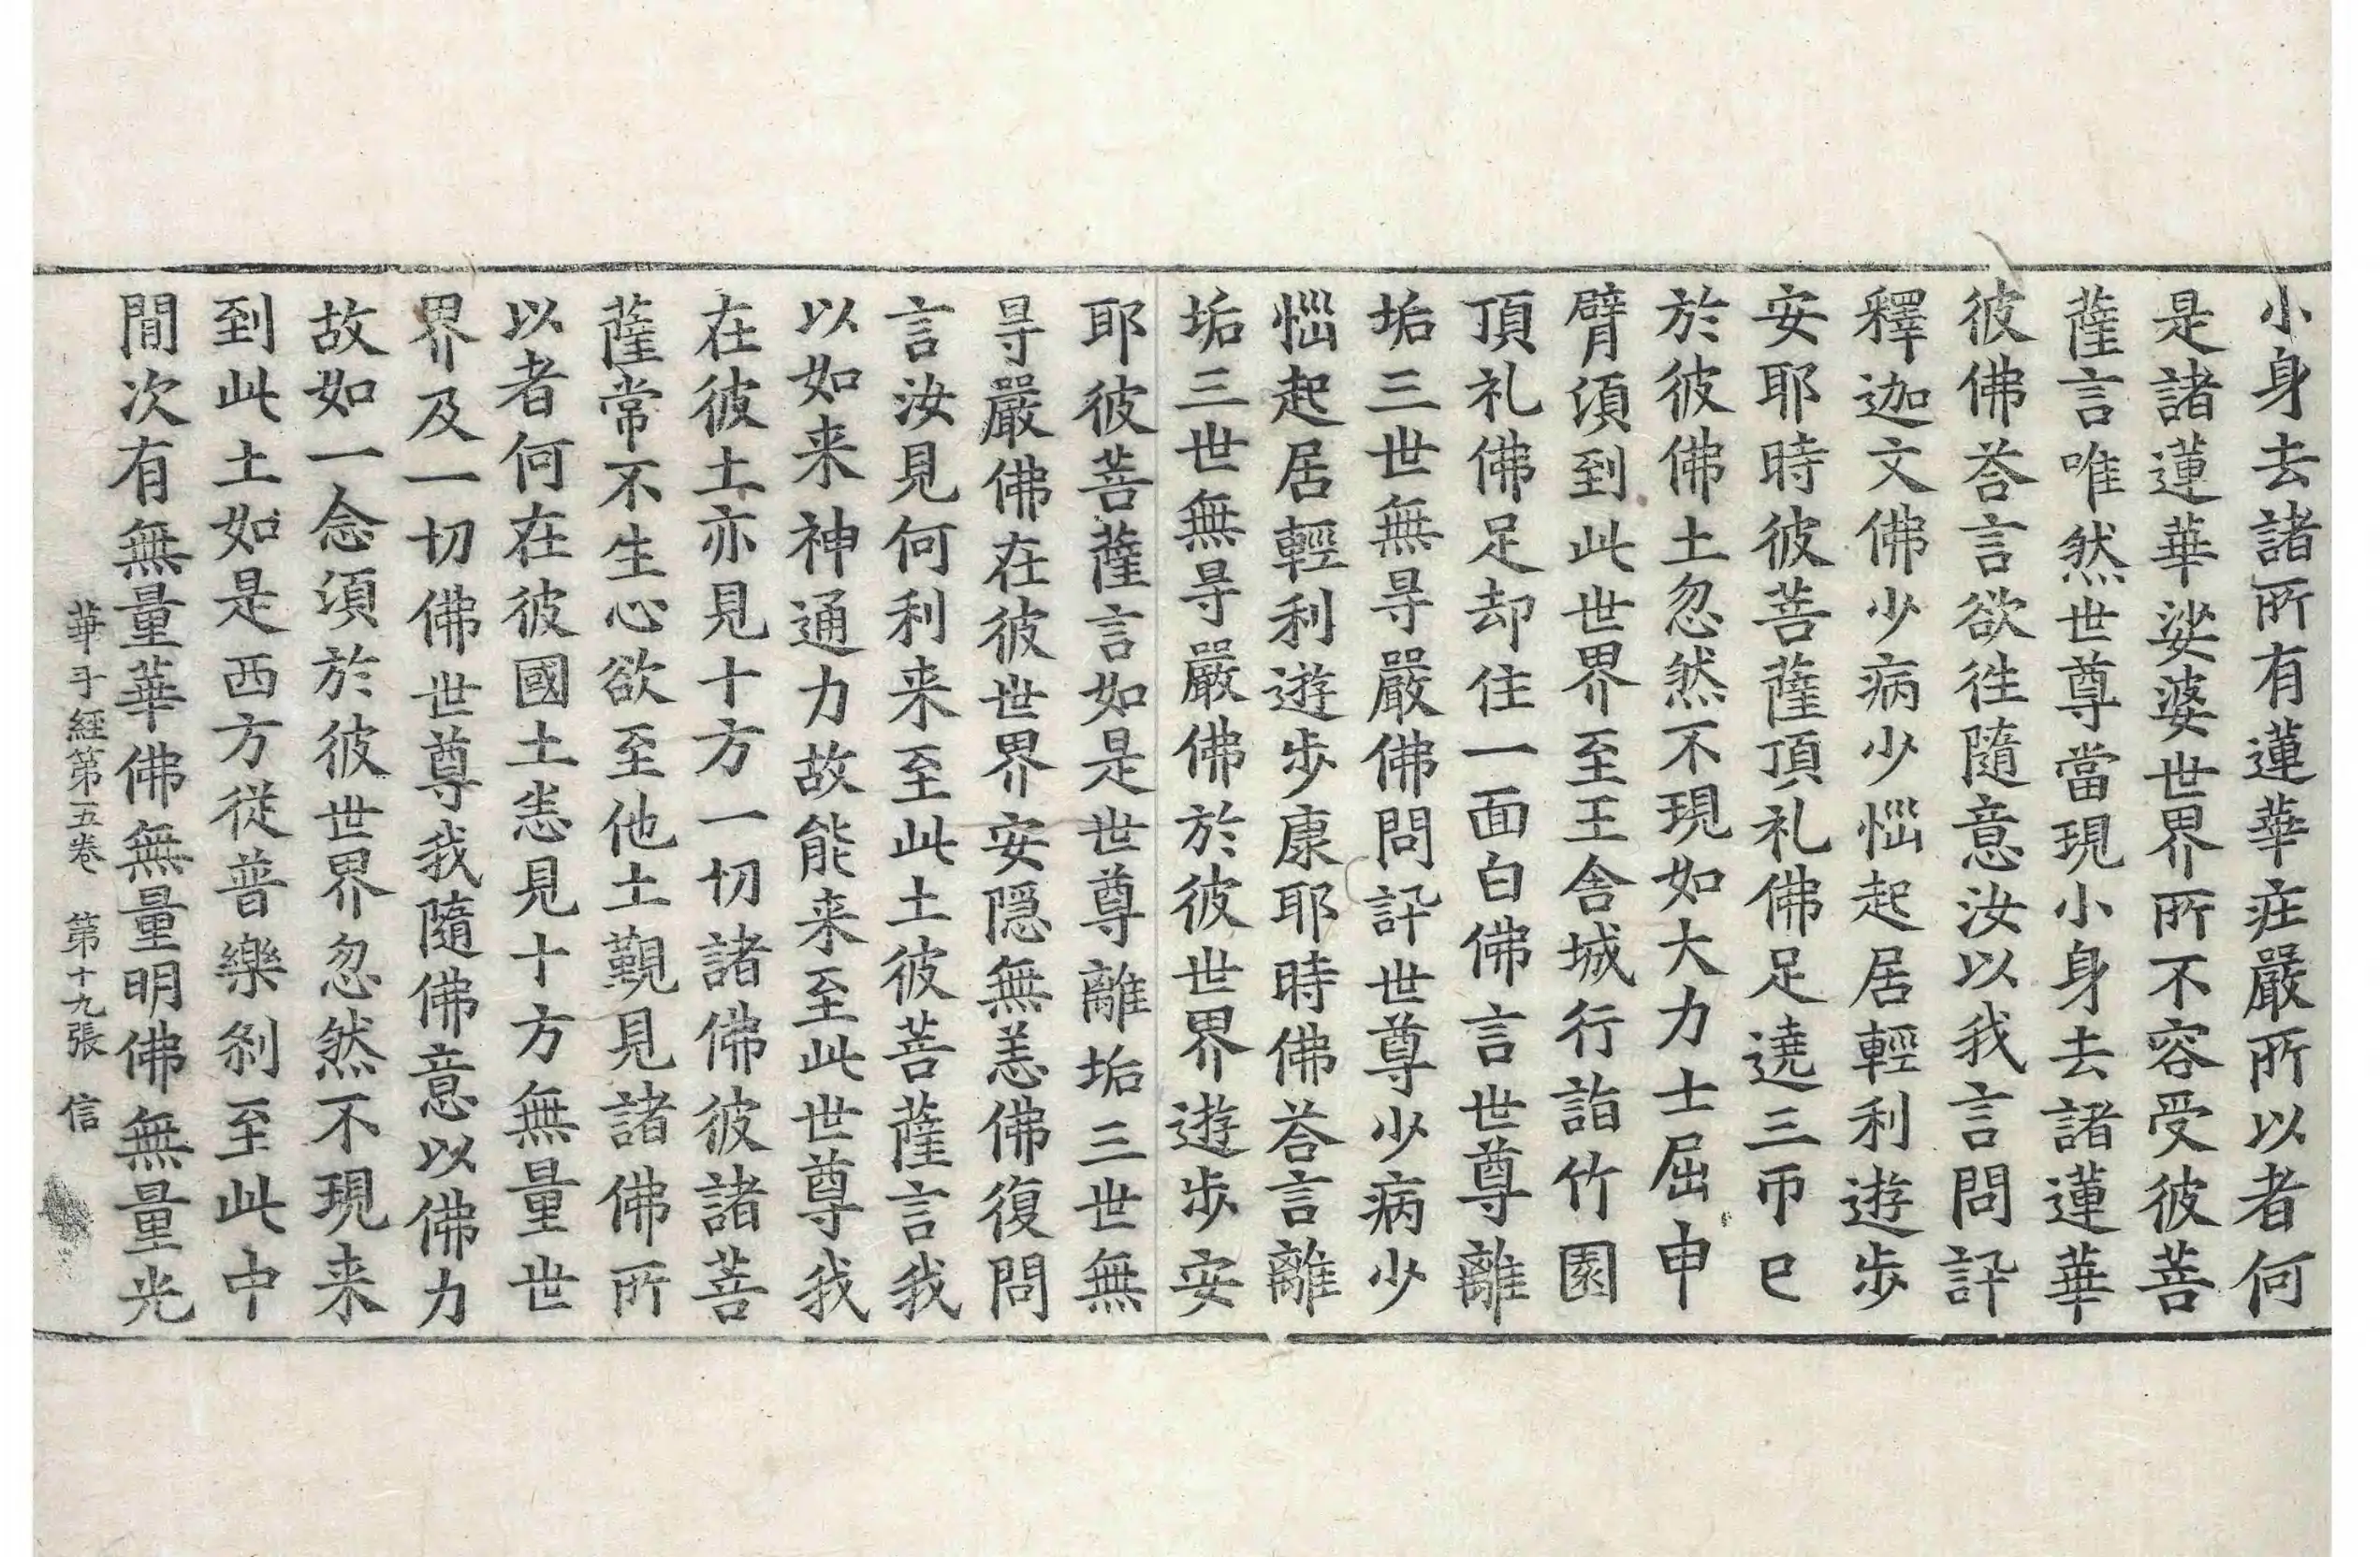 小身去諸所有蓮華疘嚴所以者何
是諸蓮華娑婆世界所不容受彼菩
薩言唯然世尊當現小身去諸蓮華
彼佛荅言欲徃隨意汝以我言問訊
釋迦文佛少病少惱起居輕利遊步
安耶時彼菩薩頂礼佛足遶三帀已
於彼佛土忽然不現如大力士屈申
臂湏到此世界至王舍城行詣竹園
頂礼佛足却住一面白佛言世尊離
垢三世無㝵嚴佛問訊世尊少病少
惱起居輕利遊步康耶時佛荅言離
垢三世無㝵嚴佛於彼世界遊步安
耶彼菩薩言如是世尊離垢三世無
㝵嚴佛在彼世界安隠無恙佛復問
言汝見何利来至此土彼菩薩言我
以如来神通力故能来至此世尊我
在彼土亦見十方一切諸佛彼諸菩
薩常不生心欲至他土覲見諸佛所
以者何在彼國土恙見十方無量世
界及一切佛世尊我隨佛意以佛力
故如一念湏於彼世界忽然不現来
到此土如是西方従普樂刹至此中
間次有無量華佛無量明佛無量光
華手經第五卷 第十九張 信